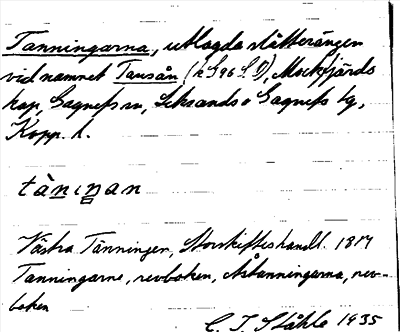 Tanningarna, utlagda slåtterängen
vid namnet Tansån (k S96 S. D), Mockfjärds
kap, Gagnefs sn, Leksands o Gagnefs tg,
Kopp. l.
tàniŋan
Västra Tänningen, Storskifteshandl. 1817
Tanningarne, revboken, Årtanningarna, rev-
boken
C. I. Ståhle 1935